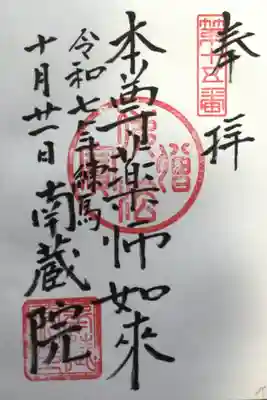 奉拝
第十五番
本尊薬師如來
令和七年練馬
十月廿一日南蔵院